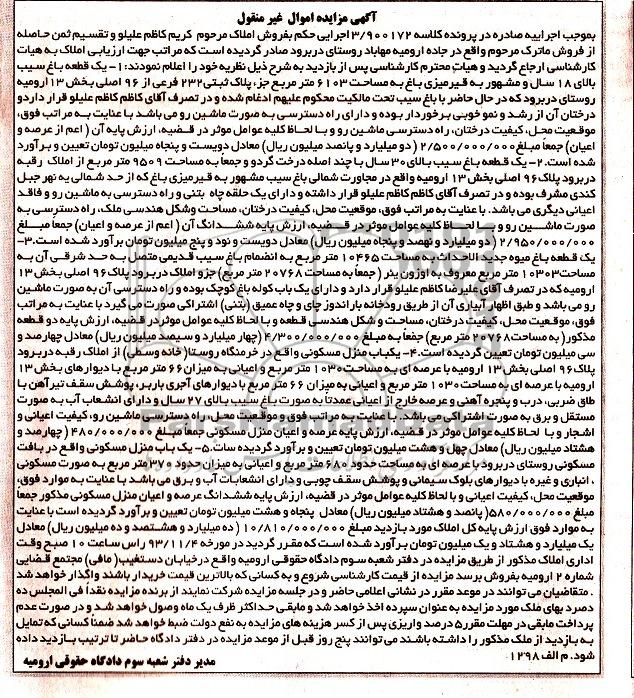 آگهی مزایده اموال غیر منقول
بموجب اجراییه صادره در پرونده کلاسه ۳/۹۰۰۱۷۲ اجرایی حکم بفروش املاک مرحوم کریم کاظم علیلو و تقسیم ثمن حاصله
از فروش ماترک مرحوم واقع در جاده ارومیه مهاباد روستای دربرود صادر گردیده است که مراتب جهت ارزیابی املاک به هیات
کارشناسی ارجاع گردید و هیات محترم کارشناسی پس از بازدید به شرح ذیل نظریه خود را اعلام نمودند:۱- یک قطعه باغ سیب
بالای ۱۸ سال و مشهور به قیرمیزی باغ به مساحت ۶۱۰۳ متر مربع جزء پلاک ثبتی ۲۳۲ فرعی از ۹۶ اصلی بخش ۱۳ ارومیه
روستای دربرود که در حال حاضر با باغ سیب تحت مالکیت محکوم علیهم ادغام شده و در تصرف آقای کاظم کاظم علیلو قرار دارد و
درختان آن از رشد و نمو خوبی برخوردار بوده و دارای راه دسترسی به صورت ماشین رو می باشد با عنایت به مراتب فوق،
موقعیت محل، کیفیت درختان، راه دسترسی ماشین رو و با لحاظ کلیه عوامل موثر در قضیه، ارزش پایه آن ( اعم از عرصه و
اعیان) جمعاً مبلغ ۲/۵۰۰/۰۰۰/۰۰۰ ( دو میلیارد و پانصد میلیون ریال) معادل دویست و پنجاه میلیون تومان تعیین و برآورد
شده است.۲- یک قطعه باغ سیب بالای ۳۰ سال با چند اصله درخت گردو و جمعاً به مساحت ۹۵۰۹ متر مربع از املاک رقبه
دربرود پلاک ۹۶ اصلی بخش ۱۳ ارومیه واقع در مجاورت شمالی باغ سیب مشهور به قیرمیزی باغ که از حد شمالی به نهر جبل
کندی مشرف بوده و در تصرف آقای کاظم کاظم علیلو قرار داشته و دارای یک حلقه چاه بتنی و راه دسترسی به ماشین رو و فاقد
اعیانی دیگری می باشد. با عنایت به مراتب فوق، موقعیت محل، کیفیت درختان، مساحت وشکل هندسی ملک، راه دسترسی به
صورت ماشین رو و با لحاظ کلیه عوامل موثر در قضیه، ارزش پایه ششدانگ آن ( اعم از عرصه و اعیان) جمعاً مبلغ
۲/۹۵۰/۰۰۰/۰۰۰ ( دو میلیارد و نهصد و پنجاه میلیون ریال) معادل دویست و نود و پنج میلیون تومان برآورد شده است.۳-
یک قطعه باغ میوه جدید الاحداث به مساحت ۱۰۴۶۵ متر مربع به انضمام باغ سیب قدیمی متصل به حد شرقی آن به
مساحت ۱۰۳۰۳ متر مربع معروف به اوزون یئر ( جمعاً به مساحت ۲۰۷۶۸ متر مربع) جزو املاک دربرود پلاک ۹۶ اصلی بخش ۱۳
ارومیه که در تصرف آقای علیرضا کاظم علیلو قرار دارد و دارای یک باب کوله باغ کوچک بوده و راه دسترسی آن به صورت ماشین
رو می باشد و طبق اظهار آبیاری آن از طریق رودخانه باراندوز چای و چاه عمیق (بتنی) اشتراکی صورت می گیرد با عنایت به مراتب
فوق، موقعیت محل، کیفیت درختان، مساحت و شکل هندسی قطعه و با لحاظ کلیه عوامل موثر در قضیه، ارزش پایه دو قطعه
مذکور( به مساحت ۲۰۷۶۸ متر مربع) جمعاً به مبلغ ۴/۳۰۰/۰۰۰/۰۰۰ (چهار میلیارد و سیصد میلیون ریال) معادل چهارصد و
سی میلیون تومان تعیین گردیده است.۴- یکباب منزل مسکونی واقع در خرمنگاه روستا( خانه وسطی) از املاک رقبه دربرود
پلاک ۹۶ اصلی بخش ۱۳ ارومیه با عرصه ای به مساحت ۱۰۳۰ متر مربع و اعیانی به میزان ۶۶ متر مربع با دیوارهای بخش ۱۳
ارومیه با عرصه ای به مساحت ۱۰۳۰ متر مربع و اعیانی به میزان ۶۶ متر مربع با دیوارهای آجری باربر، پوشش سقف تیرآهن با
طاق ضربی، درب و پنجره آهنی و عرصه خارج از اعیانی عمدتاً به صورت باغ سیب بالای ۲۷ سال و دارای انشعاب آب به صورت
مستقل و برق به صورت اشتراکی می باشد. با عنایت به مراتب فوق و موقعیت محل، راه دسترسی ماشین رو، کیفیت اعیانی و
اشجار و با لحاظ کلیه عوامل موثر در قضیه، ارزش پایه عرصه و اعیان منزل مسکونی جمعاً مبلغ ۴۸۰/۰۰۰/۰۰۰ ( چهارصد و
هشتاد میلیون ریال) معادل چهل و هشت میلیون تومان تعیین و برآورد گردیده سات.۵- یک باب منزل مسکونی واقع در بافت
مسکونی روستای دربرود با عرصه ای به مساحت حدود ۶۸۰ متر مربع و اعیانی به میزان حدود ۳۷۰ متر مربع به صورت مسکونی
، انباری و غیره با دیوارهای بلوک سیمانی و پوشش سقف چوبی و دارای انشعابات آب و برق می باشد با عنایت به موارد فوق،
موقعیت محل، کیفیت اعیانی و با لحاظ کلیه عوامل موثر در قضیه، ارزش پایه ششدانگ عرصه و اعیان منزل مسکونی مذکور جمعاً
مبلغ ۵۸۰/۰۰۰/۰۰۰ ( پانصد و هشتاد میلیون ریال) معادل پنجاه و هشت میلیون تومان تعیین و برآورد گردیده است با عنایت
به موارد فوق ارزش پایه کل املاک مورد بازدید مبلغ ۱۰/۸۱۰/۰۰۰/۰۰۰ ( ده میلیارد و هشتصد و ده میلیون ریال) معادل
یک میلیارد و هشتاد و یک میلیون تومان برآورد شده است که مقرر گردید در مورخه ۹۳/۱۱/۴ راس ساعت ۱۰ صبح وقت
اداری املاک مذکور از طریق مزایده در دفتر شعبه سوم دادگاه حقوقی ارومیه واقع درخیابان دستغیب( مافی) مجتمع قضایی
شماره ۲ ارومیه بفروش برسد مزایده از قیمت کارشناسی شروع و به کسانی که بالاترین قیمت خریدار باشند واگذار خواهد شد
. متقاضیان می توانند در موعد مقرر در نشانی اعلامی حاضر و در جلسه مزایده شرکت نمایند از برنده مزایده نقداً فی المجلس ده
درصد بهای ملک مورد مزایده به عنوان سپرده اخذ خواهد شد و مابقی حداکثر ظرف یک ماه وصول خواهد شد و در صورت عدم
پرداخت مابقی در مهلت مقرر ۵ درصد واریزی پس از کسر هزینه های مزایده به نفع دولت ضبط خواهد شد ضمناً کسانی که تمایل
به بازدید از ملک مذکور را داشته باشند می توانند پنج روز قبل از موعد مزایده در دفتر دادگاه حاضر تا ترتیب بازدید داده
شود. م الف ۱۲۹۸
مدیر دفتر شعبه سوم دادگاه حقوقی ارومیه